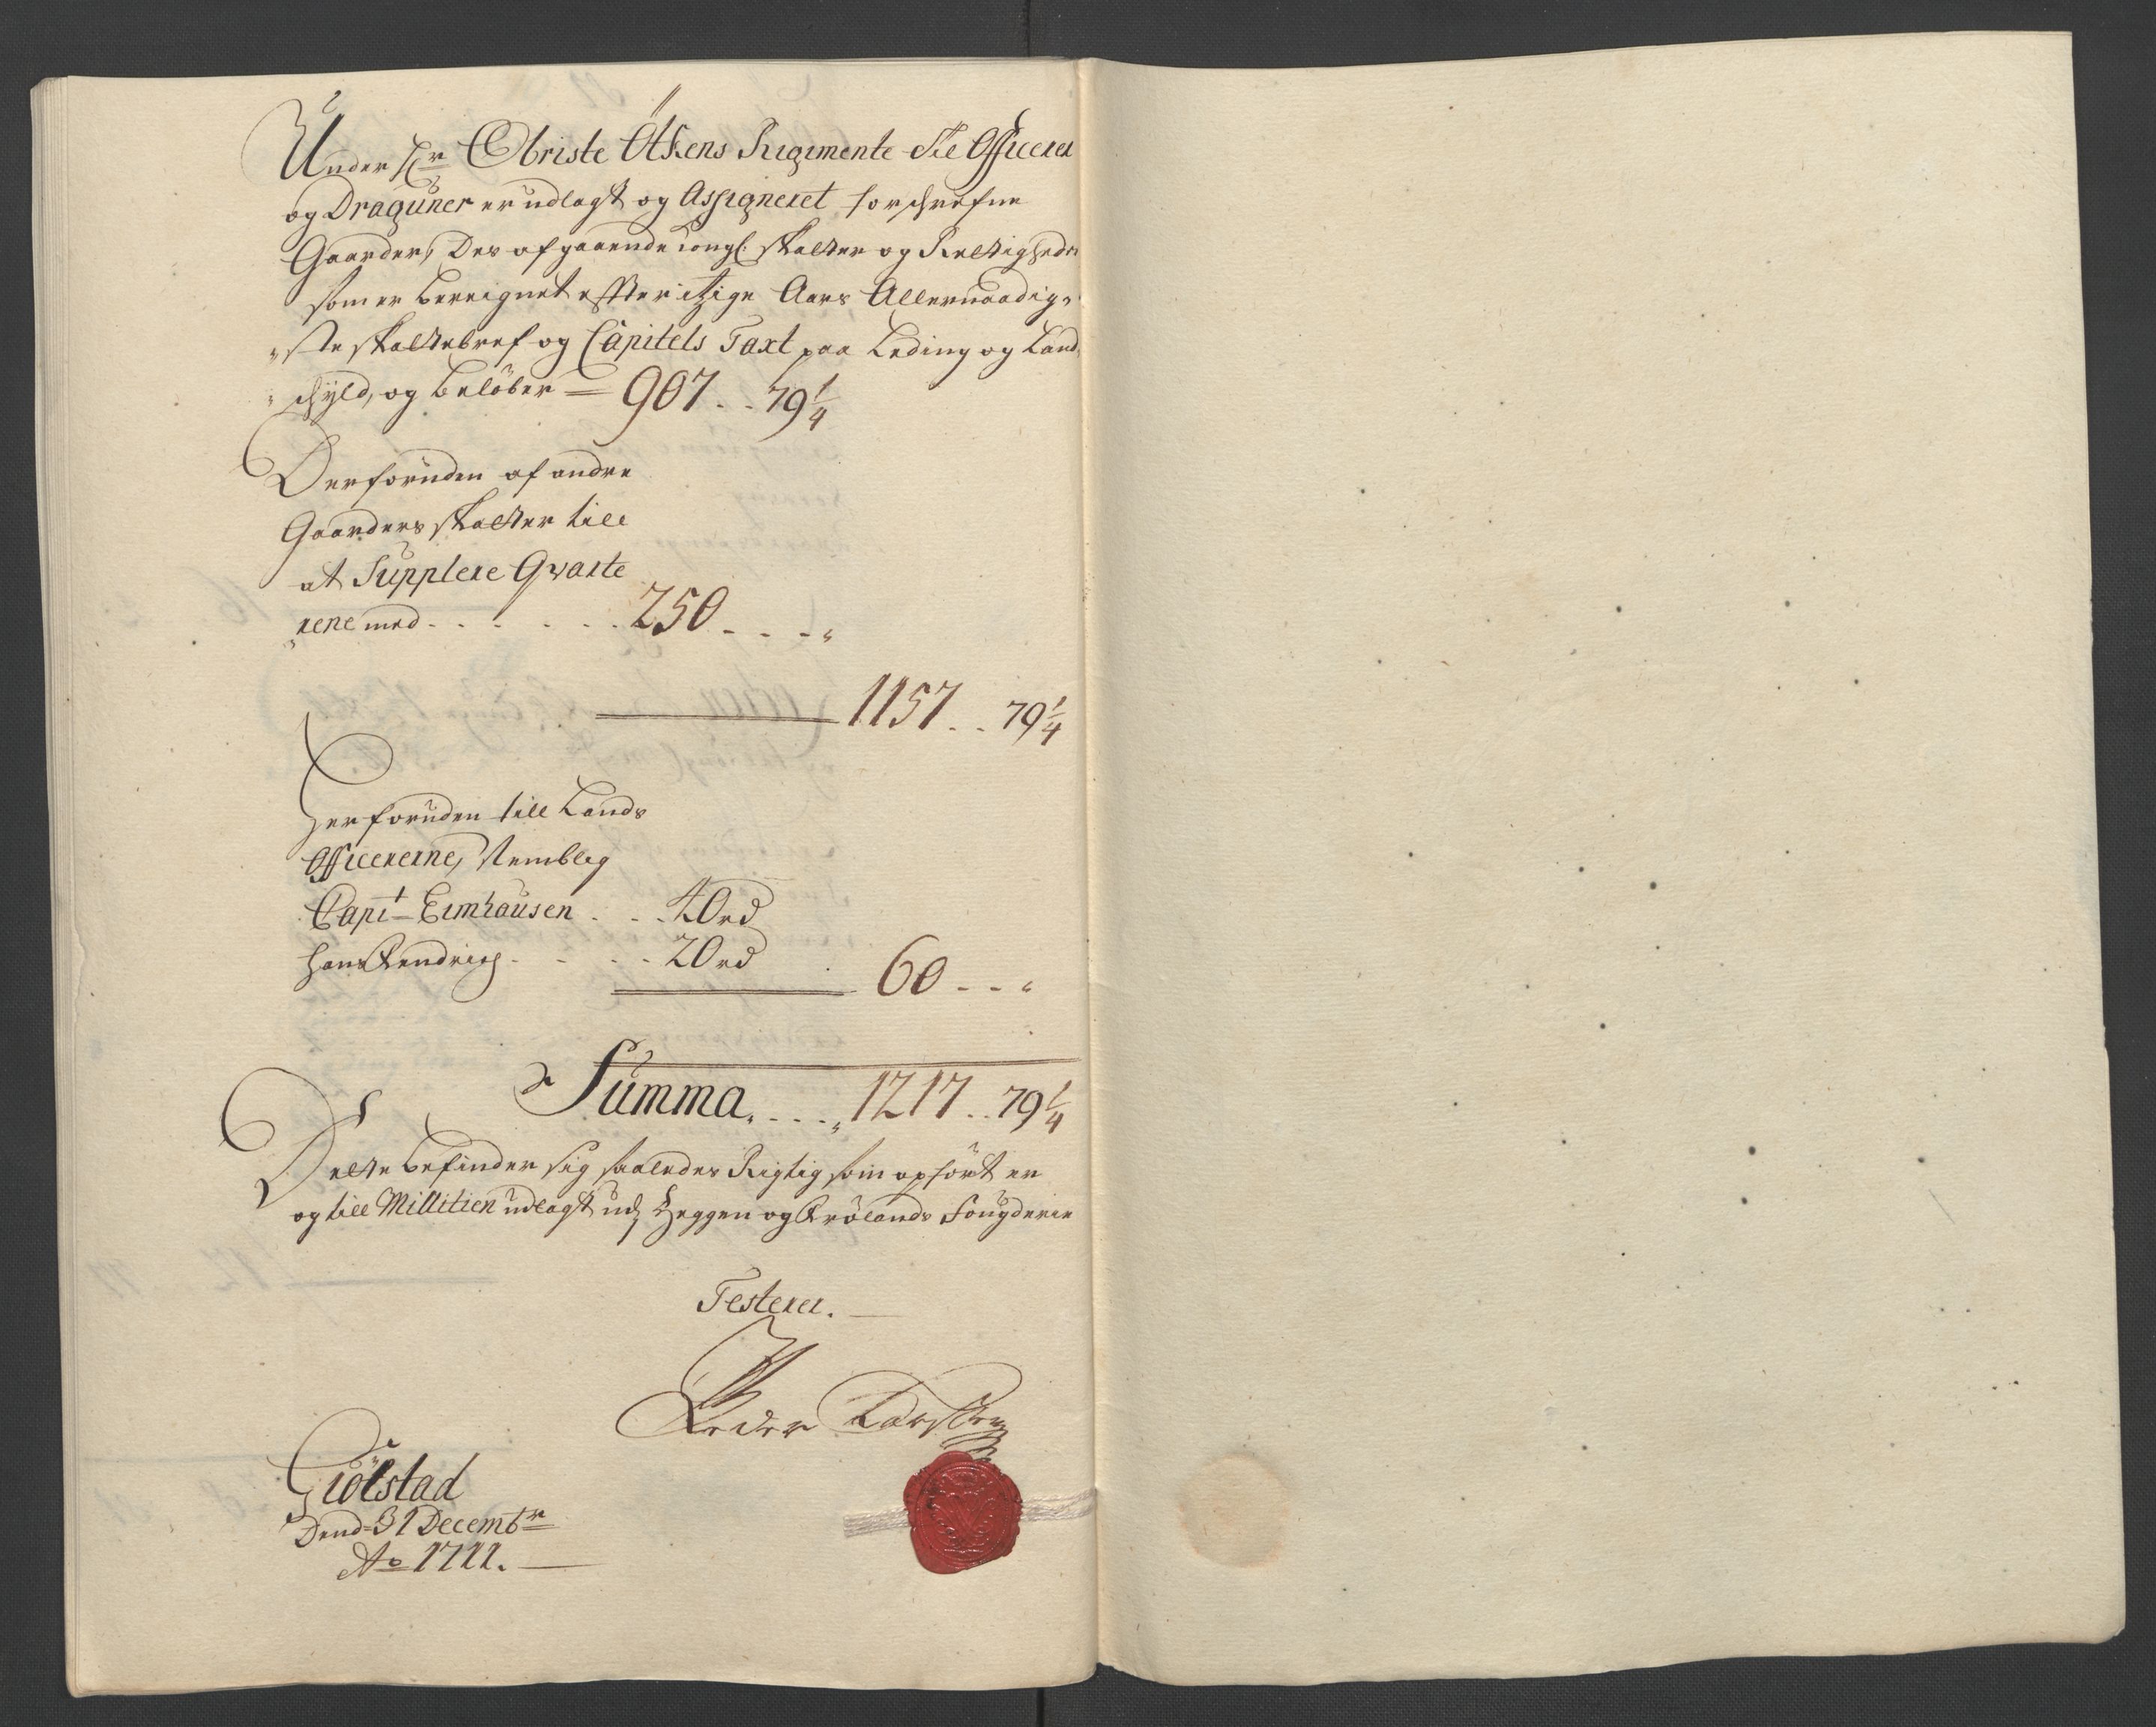 Under Hr Obriste Ötkens Regimente Til Officerer
og Dragúner er udlagt og Assigneret forschrefne
Gaarder, Des afgaaende Kongl: skatter og Rettigheder
som er bereignet effter itzige Aars Allernaadig-
ste skattebref og Capitels Taxt paa Leding og Land-
schyld, og beløber = 907 . . 79 1/4
Derforuden af andre
Gaarders skatter till
at Supplere Qvarte
rene med . . . . . . 250 - - - "
1157 . . 79 1/4
Herforuden till Lands
Officererne, Nemblig
Capit Eimhausen . . . 40 rd
Hans Hendrich . . . . 20 rd
60 - - "
Summa . . . . 1217 . . 79 1/4
Dette befinder sig saaledes Rigtig som opført er
og till Millitien udlagt udj Heggen og Frølands Fougderie
Testerer.
Peder Carsten
Giölstad
Dend 31 Decembr
Ao 1711.